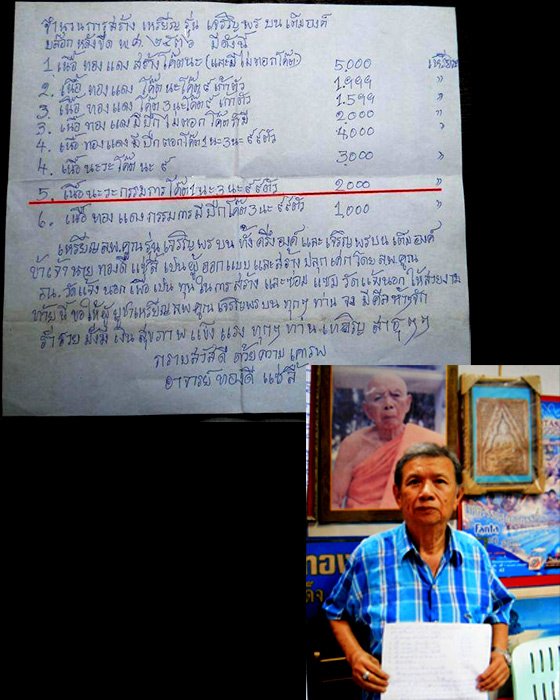 จำนวนการสร้าง เหรียญรุ่น เจริญพรบน เต็มองค์
บล๊อกหลังขีด พ.ศ. ๒๕๓๖ มีดังนี้
1. เนื้อทองแดง สร้างโค๊ตนะ(และมีไม่ตอกโค๊ต) 5,000 เหรียญ
2. เนื้อทองแดง นะโค๊ต๙ เก้าตัว 1,999 "
3. เนื้อทองแดง โค๊ต3นะโค๊ต๙ เก้าตัว 1,599 "
3. เนื้อทองแดงมีปีกไม่ตอกโค๊ตก็มี 2,000 "
4. เนื้อทองแดงมีปีกตอกโค๊ต1นะ3นะ๙๙ตัว 4,000 "
4. เนื้อนะวะโค๊ตนะ ๙ 3,000 "
5. เนื้อนะวะกรรมการโค๊ต1นะ3นะ๙๙ตัว 2,000 "
6. เนื้อทองแดงกรรมการมีปีกโค๊ต3นะ๙๙ตัว 1,000 "
เหรียญลพ.คูณรุ่นเจริญพรบน ทั้งครึ่งองค์และเจริญพรบนเต็มองค์
ข้าเจ้านายทองดี แซ่ลี้ เป็นผู้ออกแบบและสร้างปลุกเศกโดยลพ.คูณ
ณ.วัดแจ้งนอกเพื่อเป็นทุนในการสร้างและซ่อมแซมวัดแจ้งนอกให้สวยงาม
ท้ายนี้ขอให้ผู้บูชาเหรียญลพ.คูณเจริญพรบนทุกๆท่านจงมี
ร่ำรวยมั่งมีเงินสุขภาพแข็งแรงทุกๆท่านเทอญ สาธุๆๆ
กราบสวัสดี ด้วยความเคารพ
อาจารย์ทองดี แซ่ลี้
Fanta
ทอง